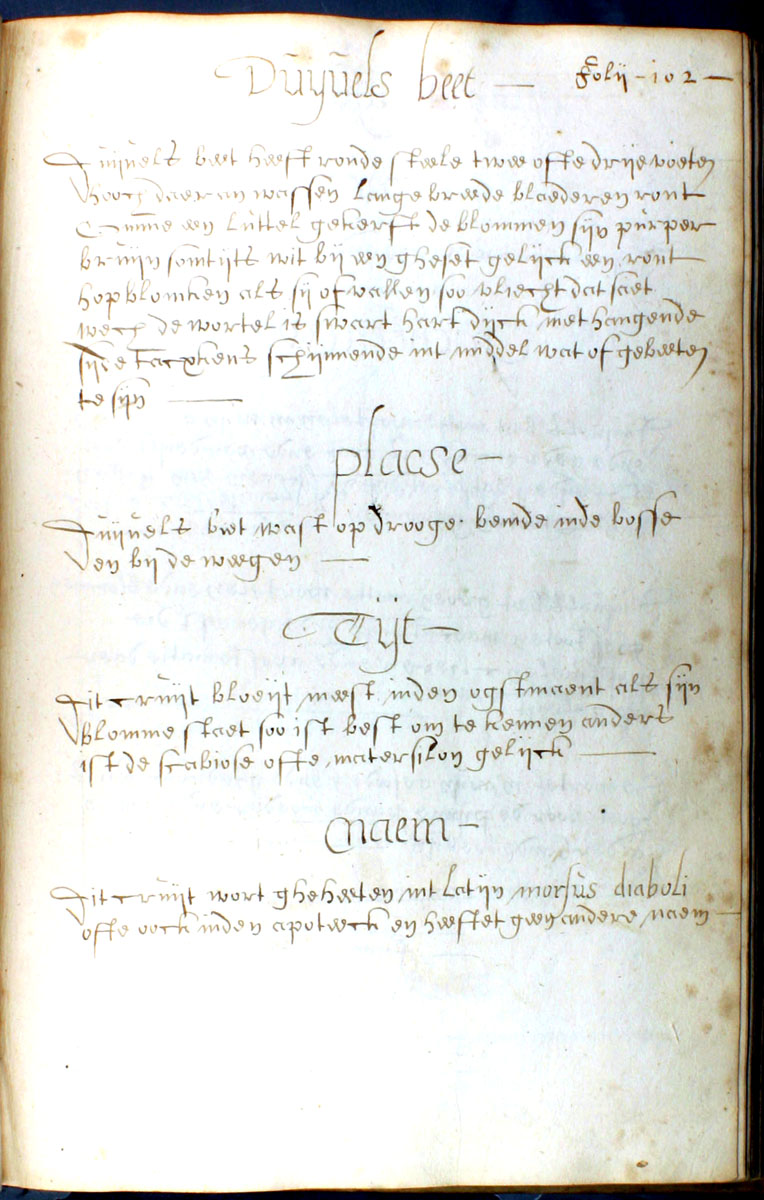 Duyvels beet — folij - 102 —
Duijvels beet heeft ronde steele twee ofte drije voeten
hooch daer an wassen lange breede blaederen ront
een luttel gekerft de blommen sijn purper
bruijn somtijts wit bij een gheset gelijck een ront
hopblomken als sij of vallen soo vliecht dat saet
wech de wortel is swart hart dijck met hangende
sijde tacxkens schijnnende int middel wat of gebeeten
te sijn —
placse —
Duijvels beet wast op drooge bemde inde bosse
en bij de weegen —
Tijt —
Dit cruijt bloeijt meest inden ogstmaent als sijn
blomme staet soo ist best om te kennen anders
ist de scabiose ofte matersilon gelijck —
naem —
Dit cruijt wort gheheeten int latijn morsus diaboli
ofte oock inden apoteeck en heeftet geen andere naem —